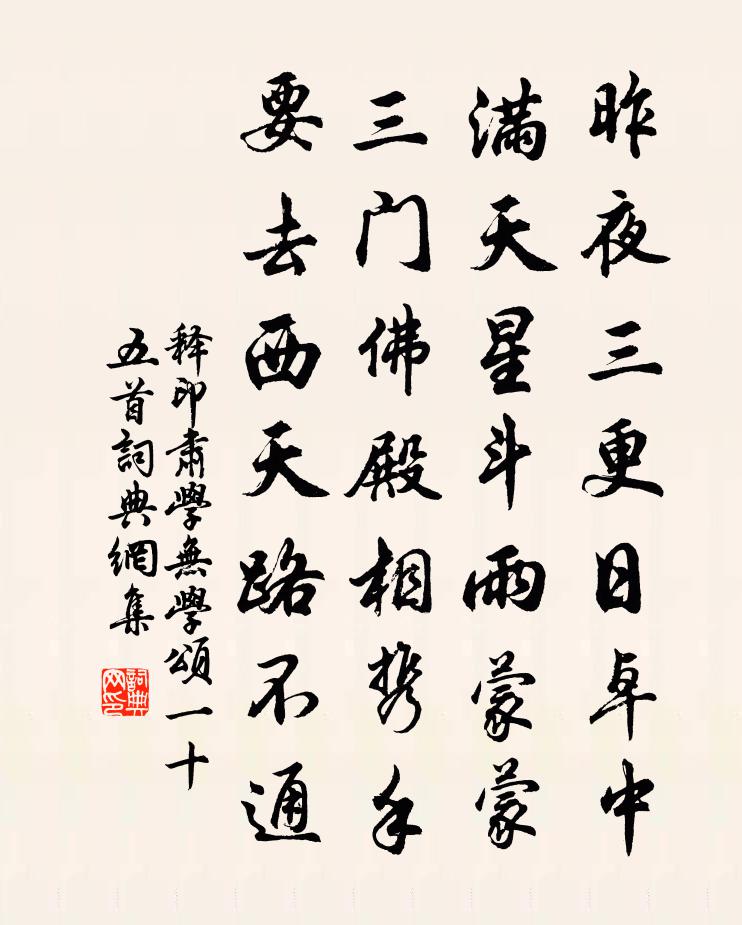 昨夜三更日卓中
滿天星斗雨蒙蒙
三门佛殿相携手
要去西天路不通
释印肃學無學頌一十
五首詞典網集
詞典网印